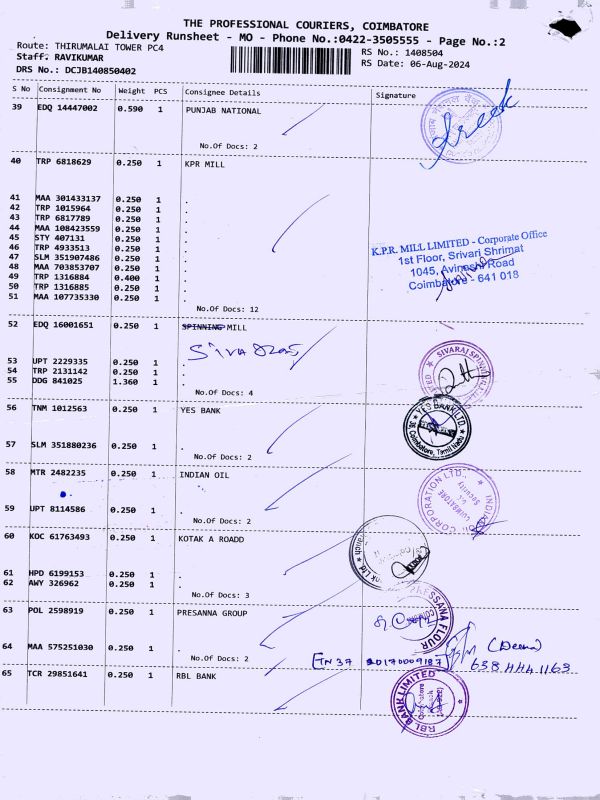 THE PROFESSIONAL COURIERS, COIMBATORE
Delivery Runsheet - MO - Phone No.:0422-3505555 - Page No.:2
Route: THIRUMALAI TOWER PC4
RS No.: 1408504
Staff. RAVIKUMAR
RS Date: 06-Aug-2024
DRS No.: DCJB140850402
S No Consignment No Weight PCS Consignee Details Signature
39 EDQ 14447002 0.590 1 PUNJAB NATIONAL
No.Of Docs: 2
40 TRP 6818629 0.250 1 KPR MILL
41 MAA 301433137 0.250 1 .
42 TRP 1015964 0.250 1 .
43 TRP 6817789 0.250 1 .
44 MAA 108423559 0.250 1 .
45 STY 407131 0.250 1 .
46 TRP 4933513 0.250 1 .
47 SLM 351907486 0.250 1 .
48 MAA 703853707 0.250 1 .
49 TRP 1316884 0.400 1 .
50 TRP 1316885 0.250 1 .
51 MAA 107735330 0.250 1 .
No.Of Docs: 12
K.P.R. MILL LIMITED - Corporate Office
1st Floor, Srivari Shrimat
1045, Avinashi Road
Coimbatore - 641 018
52 EDQ 16001651 0.250 1 SPINNING MILL
53 UPT 2229335 0.250 1 .
54 TRP 2131142 0.250 1 .
55 DDG 841025 1.360 1 .
No.Of Docs: 4
SIVARAJ SPINNING
56 TNM 1012563 0.250 1 YES BANK
YES BANK LTD.
Coimbatore, Tamil Nadu
57 SLM 351880236 0.250 1 .
No.Of Docs: 2
58 MTR 2482235 0.250 1 INDIAN OIL
INDIAN OIL CORPORATION LTD.
Security
COIMBATORE
59 UPT 8114586 0.250 1 .
No.Of Docs: 2
60 KOC 61763493 0.250 1 KOTAK A ROADD
61 HPD 6199153 0.250 1 .
62 AWY 326962 0.250 1 .
No.Of Docs: 3
63 POL 2598919 0.250 1 PRESANNA GROUP
PRESSANA FLOUR
64 MAA 575251030 0.250 1 .
No.Of Docs: 2
(Deena)
65 TCR 29851641 0.250 1 RBL BANK
RBL BANK LIMITED